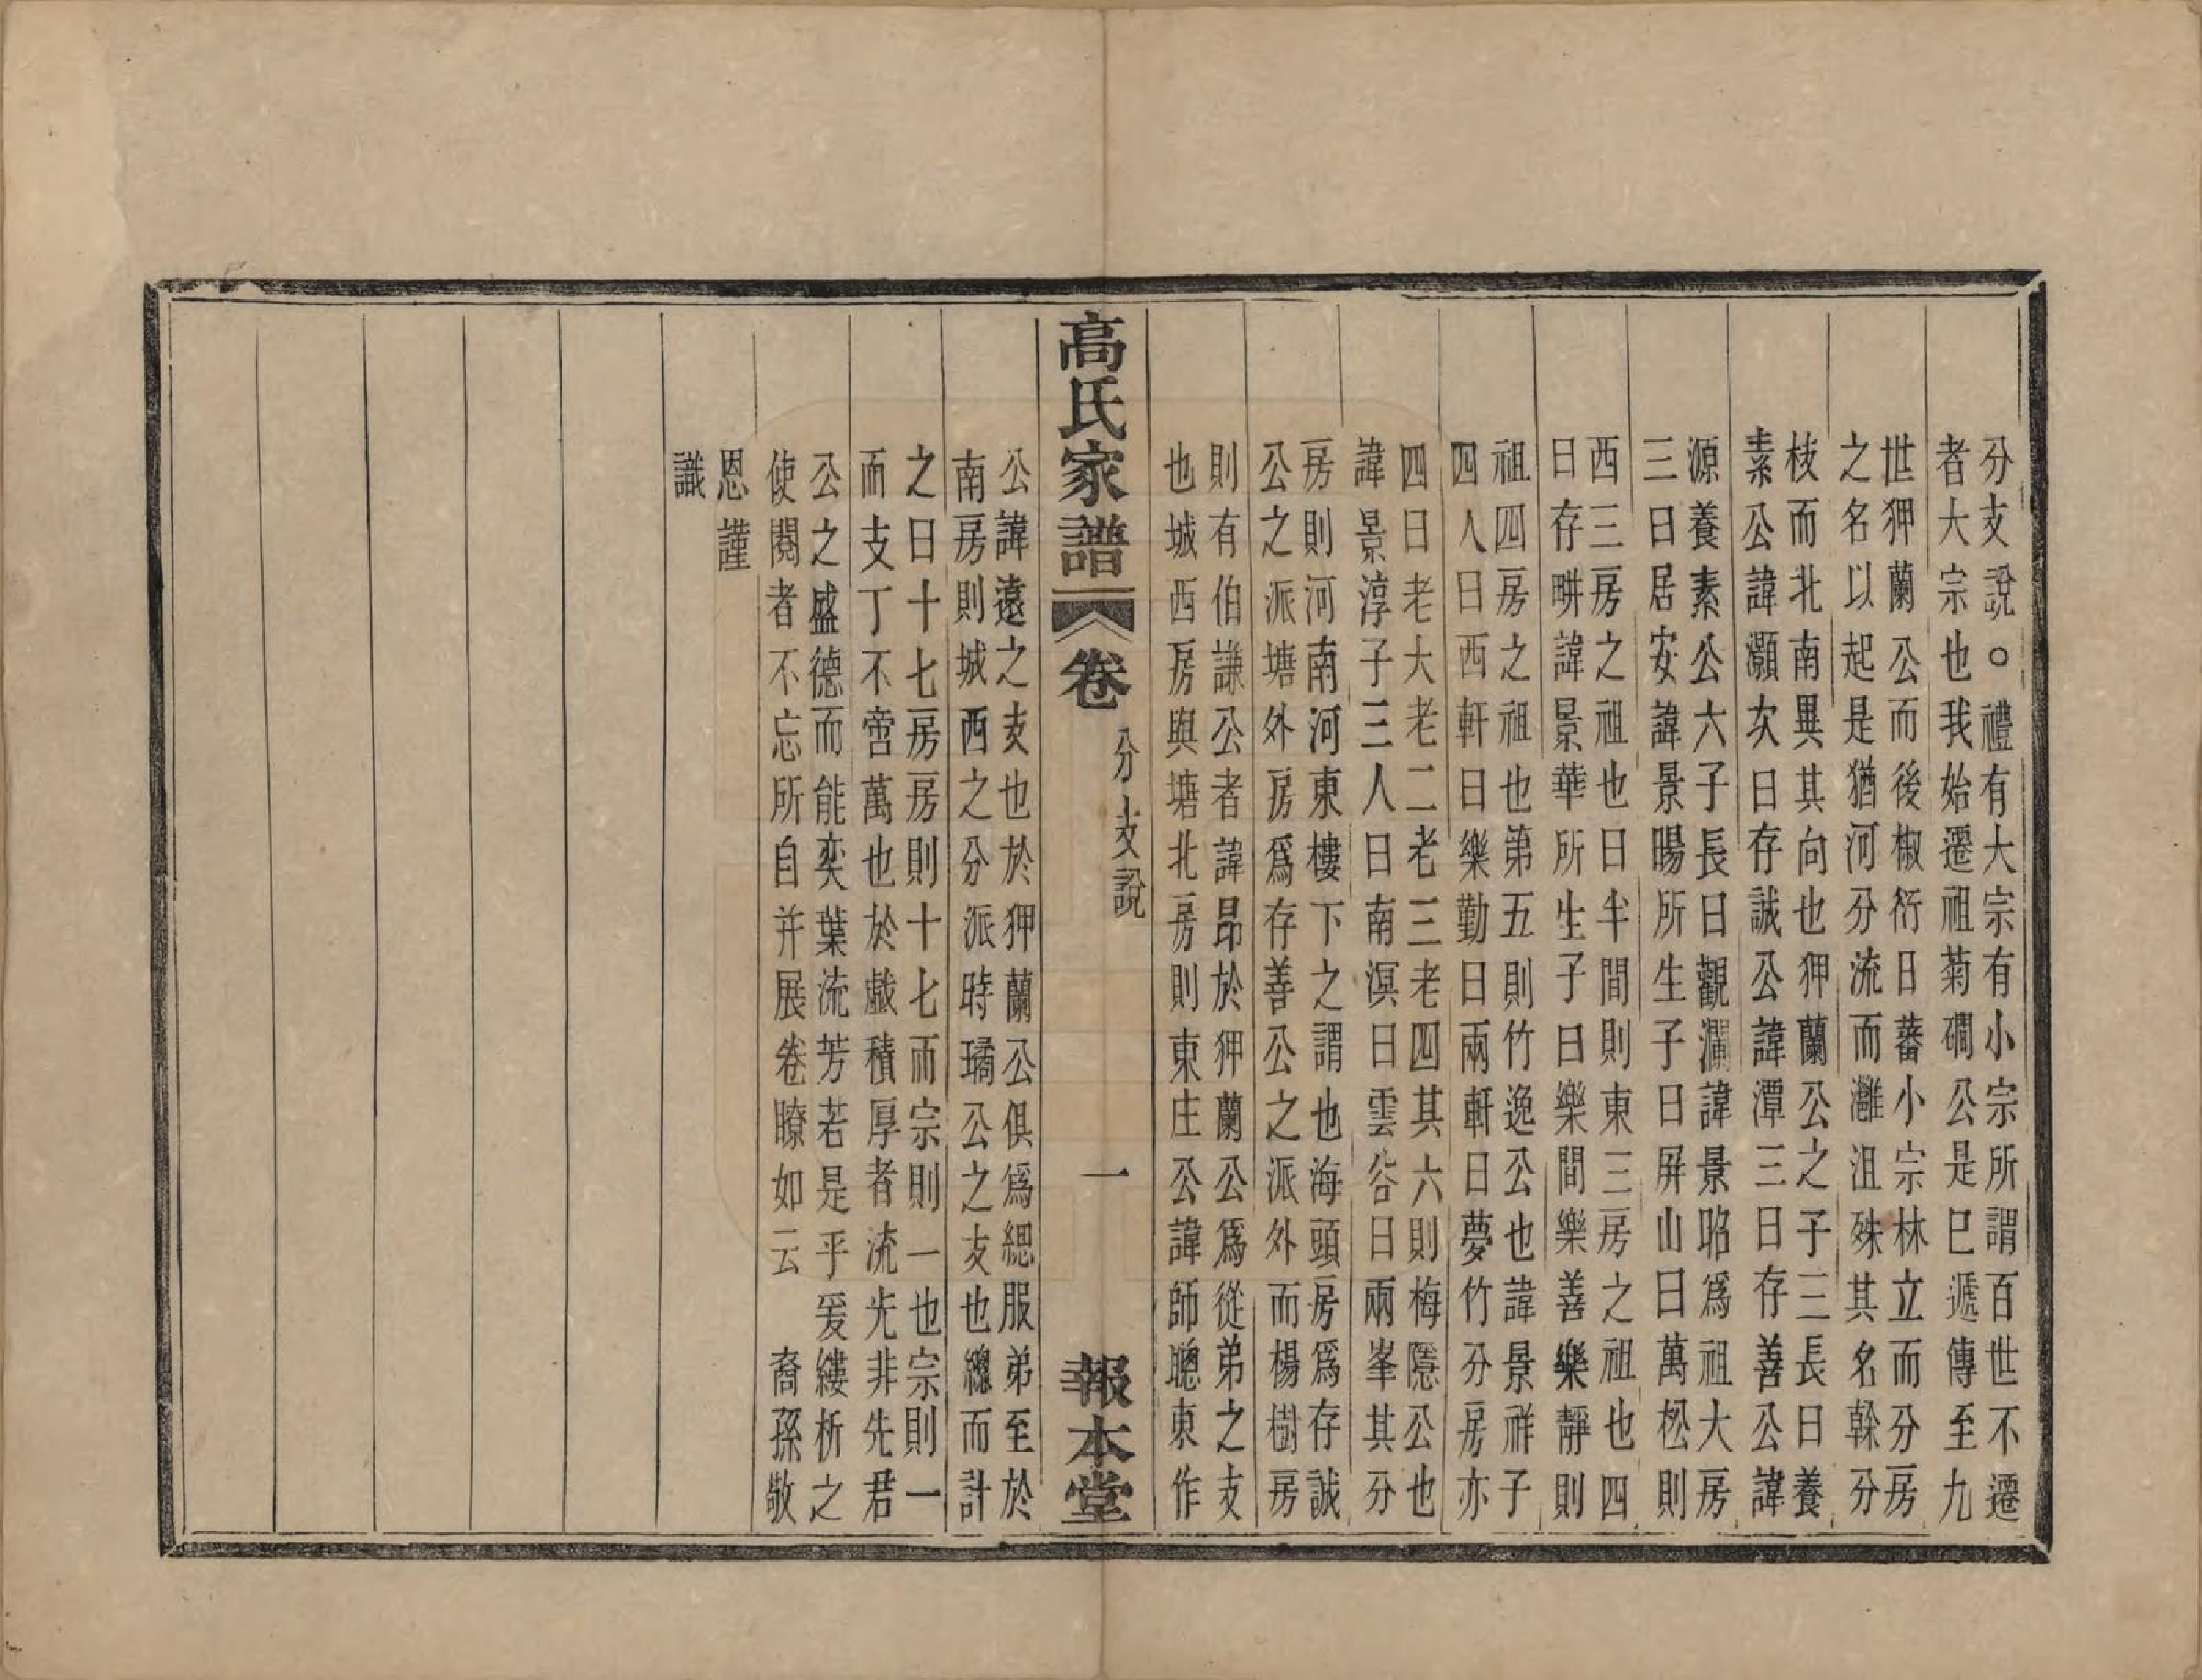 分支說○禮有大宗有小宗所謂百世不遷
者大宗也我始遷祖菊磵公是巳遞傳至九
世狎蘭公而後椒衍日蕃小宗林立而分房
之名以起是猶河分流而灉沮殊其名榦分
枝而北南異其向也狎蘭公之子三長曰養
素公諱灝次曰存誠公諱潭三曰存善公諱
源養素公六子長曰觀瀾諱景昭爲祖大房
三曰居安諱景暘所生子曰屏山曰萬松則
西三房之祖也曰半間則東三房之祖也四
曰存畊諱景華所生子曰樂間樂善樂靜則
祖四房之祖也第五則竹逸公也諱景祥子
四人曰西軒曰樂勤曰兩軒曰夢竹分房亦
四曰老大老二老三老四其六則梅隱公也
諱景淳子三人曰南溟曰雲谷曰兩峯其分
房則河南河東樓下之謂也海頭房爲存誠
公之派塘外房爲存善公之派外而楊樹房
則有伯謙公者諱昻於狎蘭公爲從弟之支
也城西房與塘北房則東庄公諱師聰東作
高氏家譜 卷 分支說 一 報本堂
公諱遠之支也於狎蘭公俱爲緦服弟至於
南房則城西之分派時璚公之支也總而計
之曰十七房房則十七而宗則一也宗則一
而支丁不啻萬也於戲積厚者流光非先君
公之盛德而能奕葉流芳若是乎爰縷析之
使閱者不忘所自并展卷瞭如云 裔孫敬
恩謹
識